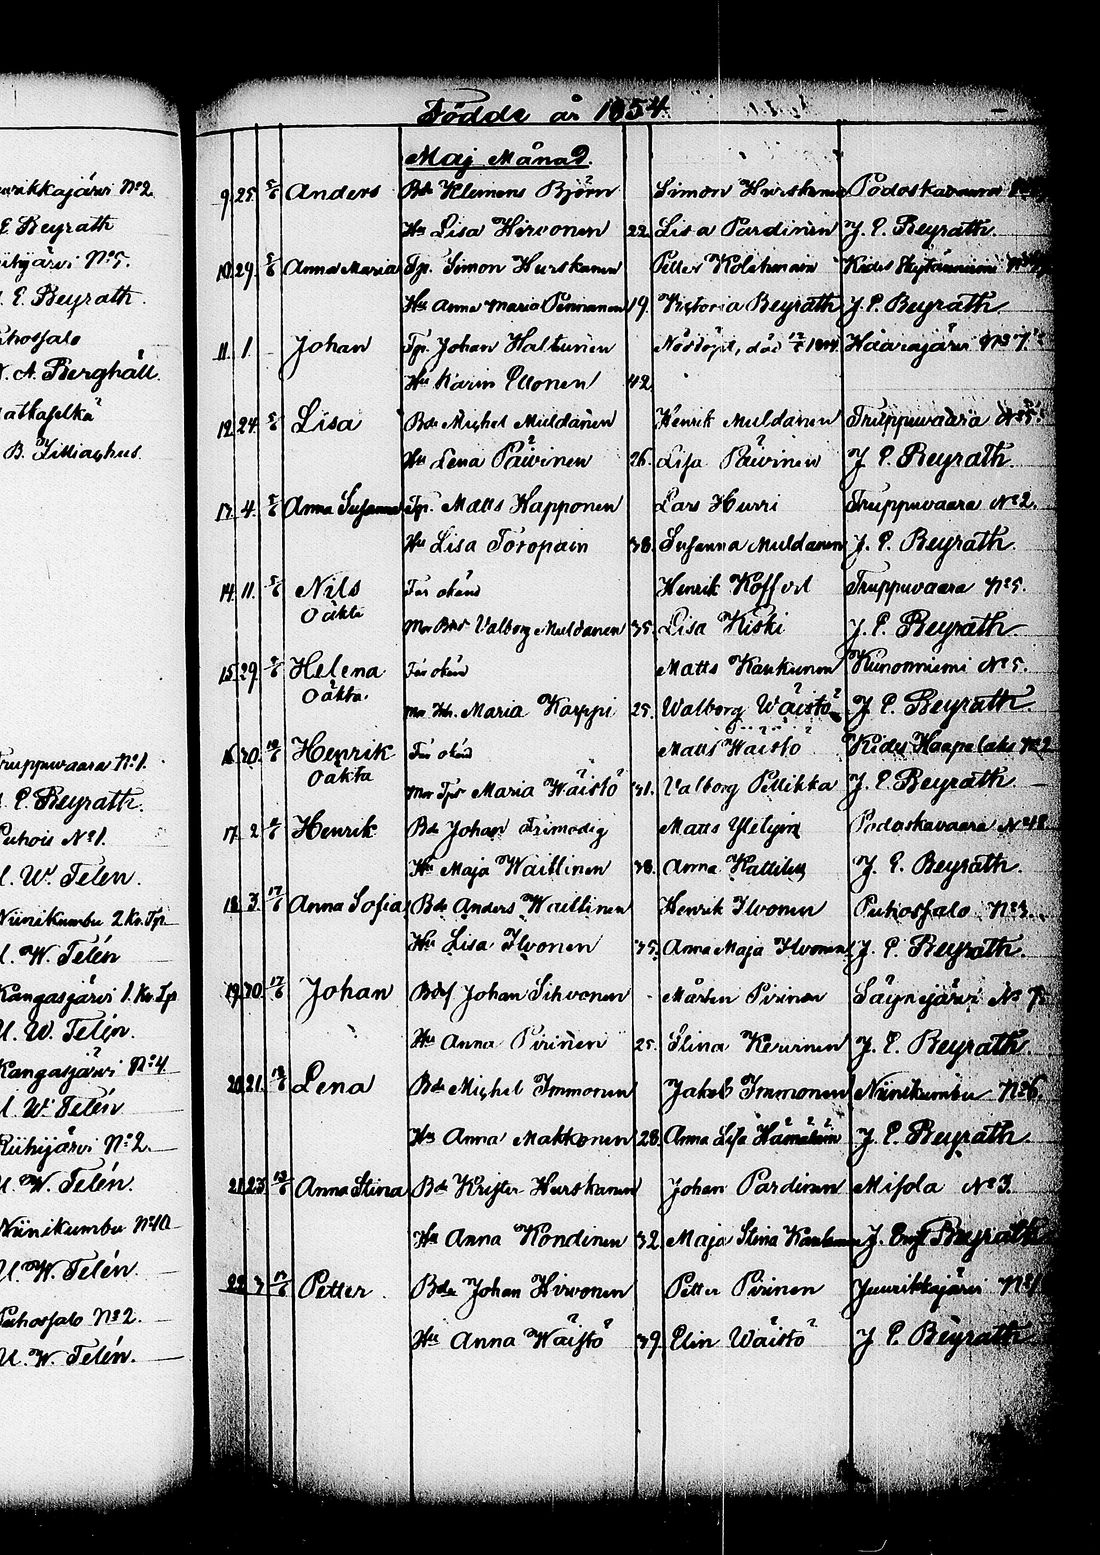 enrikkajärvi No 2.
E. Beyrath
Riihijärvi No 5.
J. E. Beyrath.
Puhossalo
N. A. Berghäll.
Ratkaselkä
B. Zilliachus.
Truppuvaara No 1.
J. E. Beyrath.
Puhois No 1.
U. W. Telén.
Niinikumbu 2 Kr. Tp.
U. W. Telén
Kangasjärvi 1. Kr. Tp
U. W. Telén.
Kangasjärvi No 4
U. W. Telén
Riihijärvi No 2.
U. W. Telén.
Niinikumbu No 10
U. W. Telén.
Puhossalo No 2.
U. W. Telén.
Födde år 1854
Maj Månad.
9. 25. 5/6 Anders Bde Klemens Björn Simon Hurskainen Podoskavaara
Hu Lisa Hirvonen 22. Lisa Pardinen J. E. Beyrath.
10. 29. 5/6 Anna Maria Tp. Simon Hurskanen Petter Kolehmain Kides
Hu Anna Maria Pennanen 19. Victoria Beyrath J. E. Beyrath.
11. 1. Johan Tp. Johan Haltunen Nöddöpt, död Haarajärvi No 7.
Hu Karin Ellonen 42
12. 24. 5/6 Lisa Bde Michel Muldanen Henrik Muldanen Truppuvaara No 5.
Hu Lena Päivinen 26. Lisa Päivinen J. E. Beyrath.
13. 4. 5/6 Anna Susanna Tp. Matts Happonen Lars Hurri Truppuvaara No 2.
Hu Lisa Toropain 38. Susanna Muldanen J. E. Beyrath.
14. 11. 5/6 Nils Far okänd Henrik Koffvel Truppuvaara No 5.
Oäkta Mor Valborg Muldanen 35. Lisa Kiski J. E. Beyrath.
15. 29. 5/6 Helena Far okänd Matts Kaukunen Kunonniemi No 5.
Oäkta. Mor Maria Kappi 25. Walborg Wäistö J. E. Beyrath.
16. 30. 10/6 Henrik Far okänd Matts Wäistö Kides Haapalaks No 2
Oäkta Mor Maria Wäistö 31. Valborg Pellikka J. E. Beyrath.
17. 2. Henrik Bde Johan Frimodig Matts Podoskavaara No 48
Hu Maja Waittinen 38. Anna J. E. Beyrath.
18. 3. 17/6 Anna Sofia Bde Anders Waittinen Henrik Ilvonen Puhossalo No 3.
Hu Lisa Ilvonen 35. Anna Maja Ilvonen J. E. Beyrath.
19. 30. 17/6 Johan Bdes Johan Sihvonen Mårten Pirinen Säynejärvi No 7.
Hu Anna Pirinen 25. Stina Keurinen J. E. Beyrath.
20. 21. Lena Bde Michel Immonen Jakob Immonen Niinikumbu No 6.
Hu Anna Makkonen 28. Anna Lisa Hämäläin J. E. Beyrath.
21. 23. Anna Stina Bde Krister Hurskanen Johan Pardinen Misola No 3.
Hu Anna Kondinen 32. Maja Stina J. Beyrath
22. 3. 17/6 Petter Bde Johan Hirvonen Petter Pirinen Juurikkajärvi
Hu Anna Wäistö 39. Elin Wäistö J. E. Beyrath